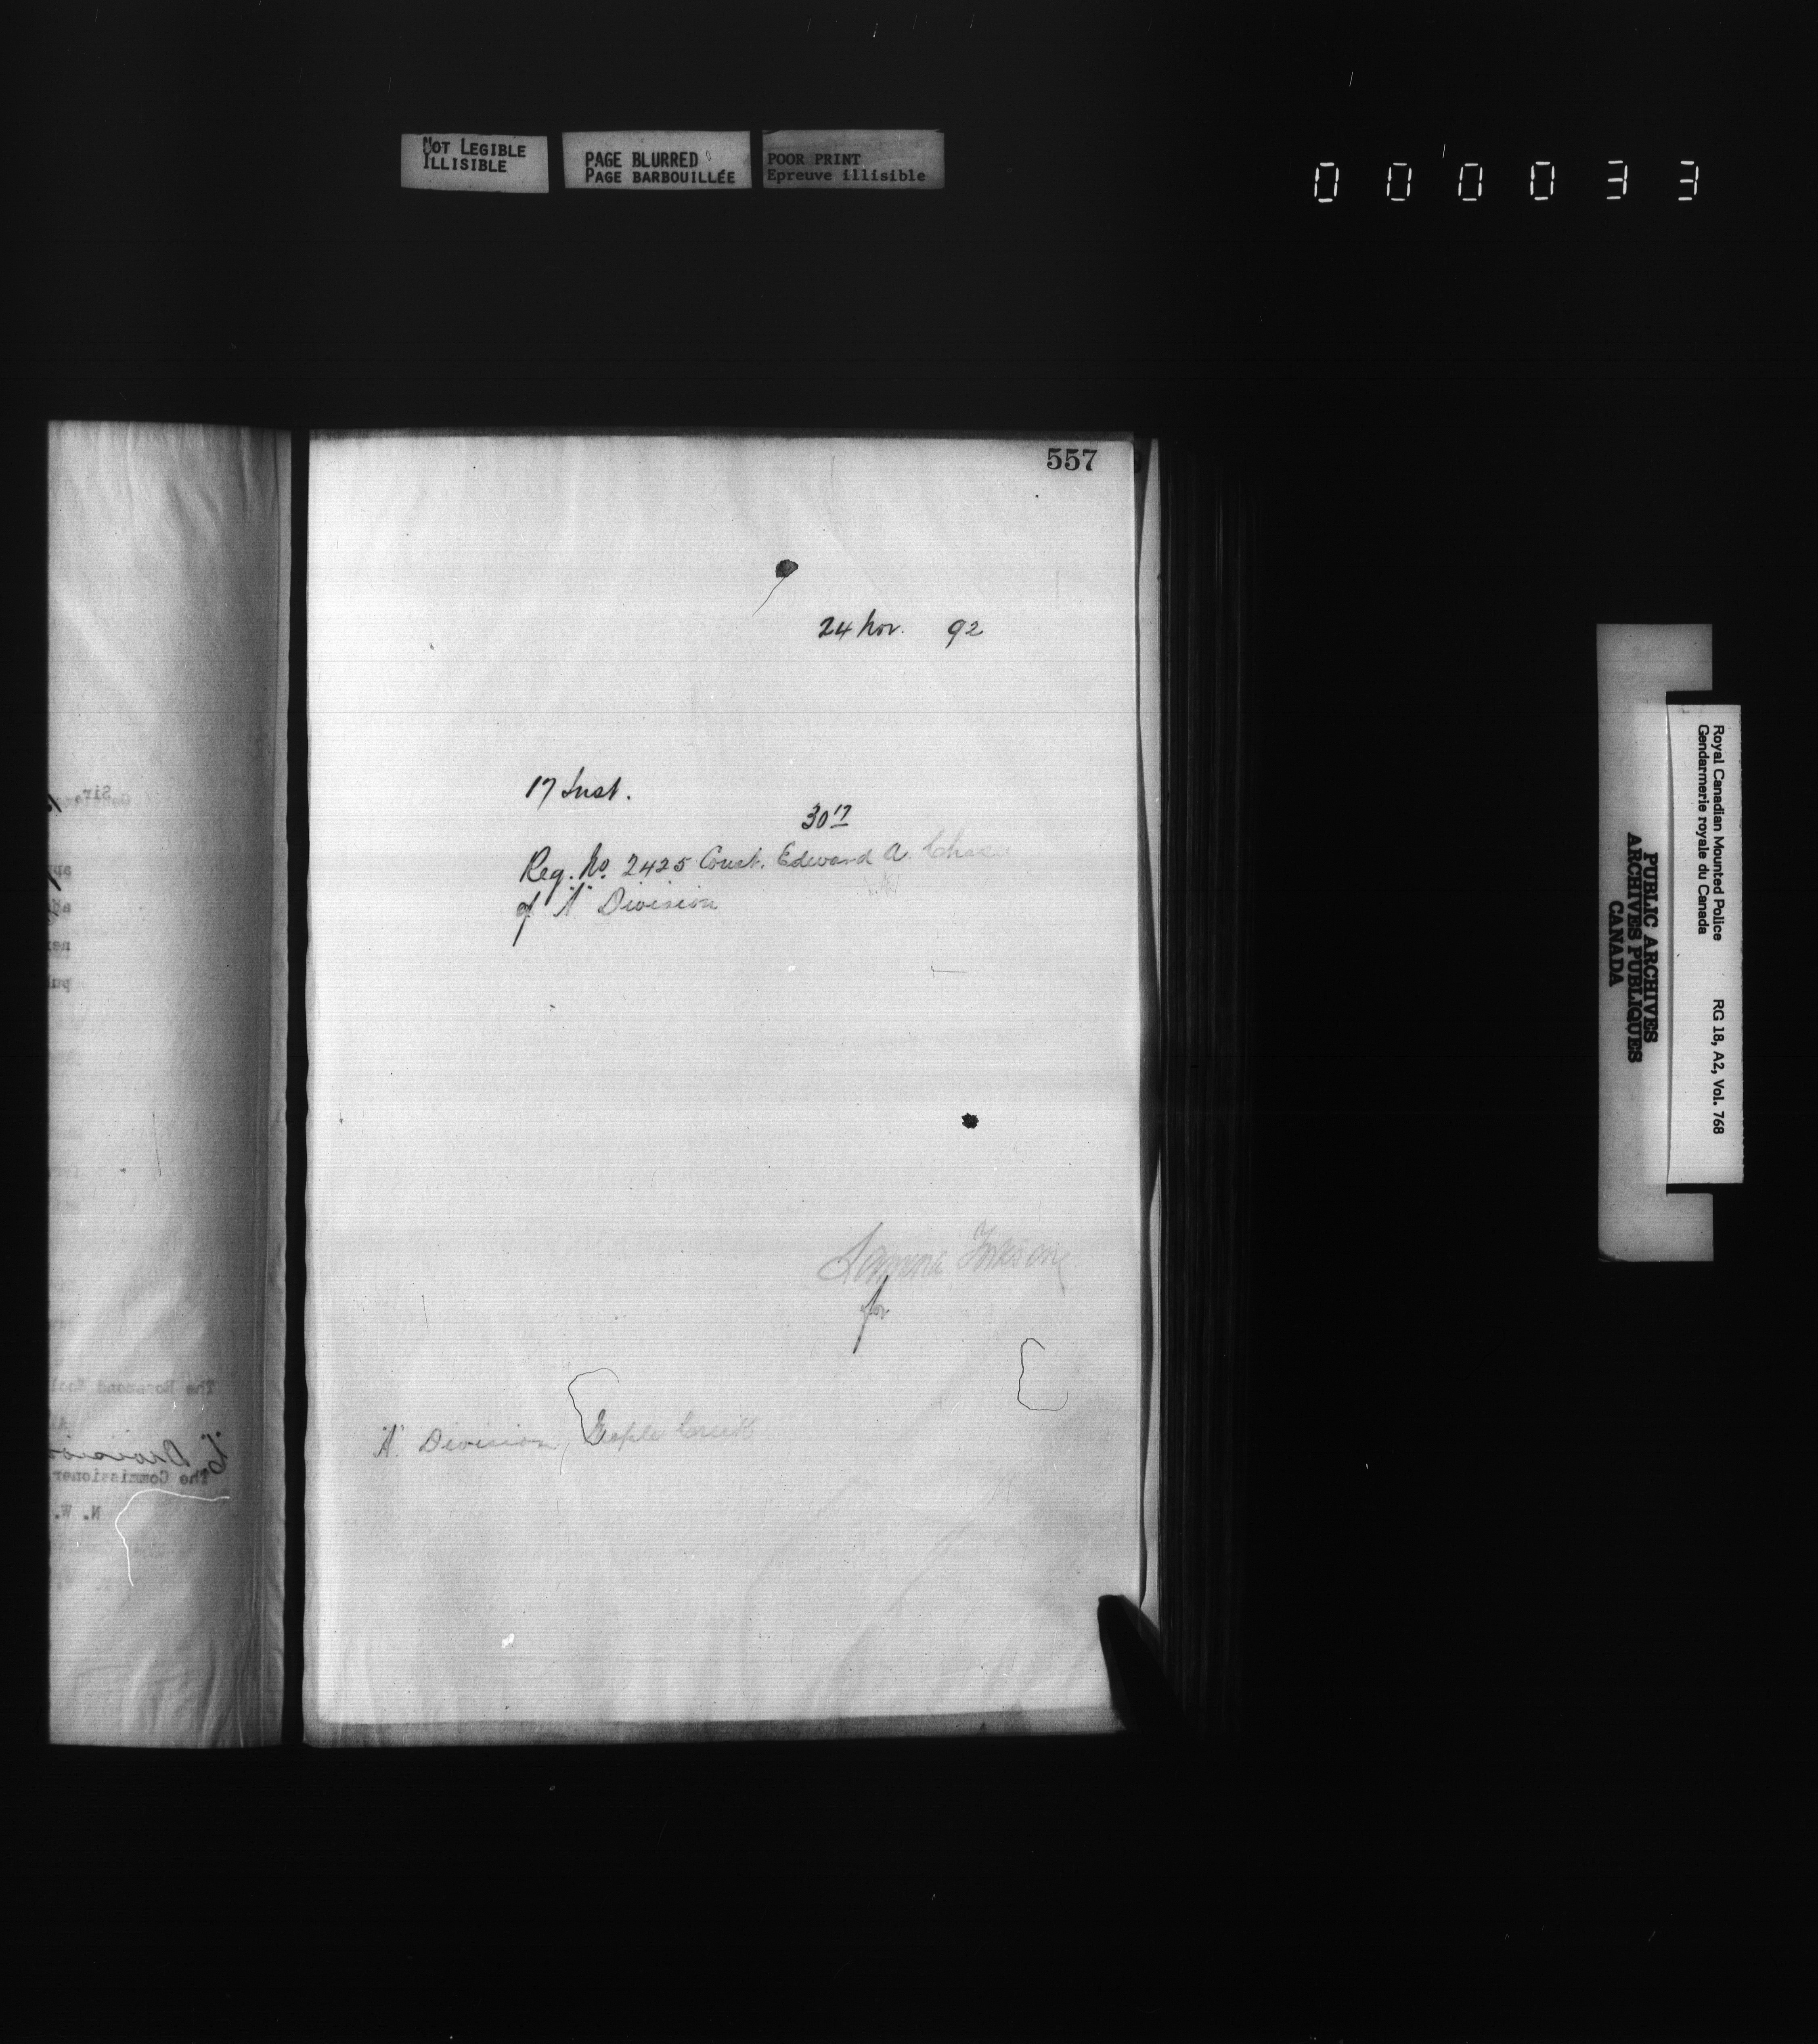 NOT LEGIBLE
ILLISIBLE
PAGE BLURRED
PAGE BARBOUILLÉE
POOR PRINT
Epreuve illisible
000033
557
24 Nov. 92
17 Inst.
30 17
Reg. No. 2425 Const. Edward A. Chase
of "A" Division
for
"A" Division, Maple Creek
Sir,
The Rosamond
Division
The Commissioner
N. W.
Royal Canadian Mounted Police RG 18, A2, Vol. 768
Gendarmerie royale du Canada
PUBLIC ARCHIVES
ARCHIVES PUBLIQUES
CANADA